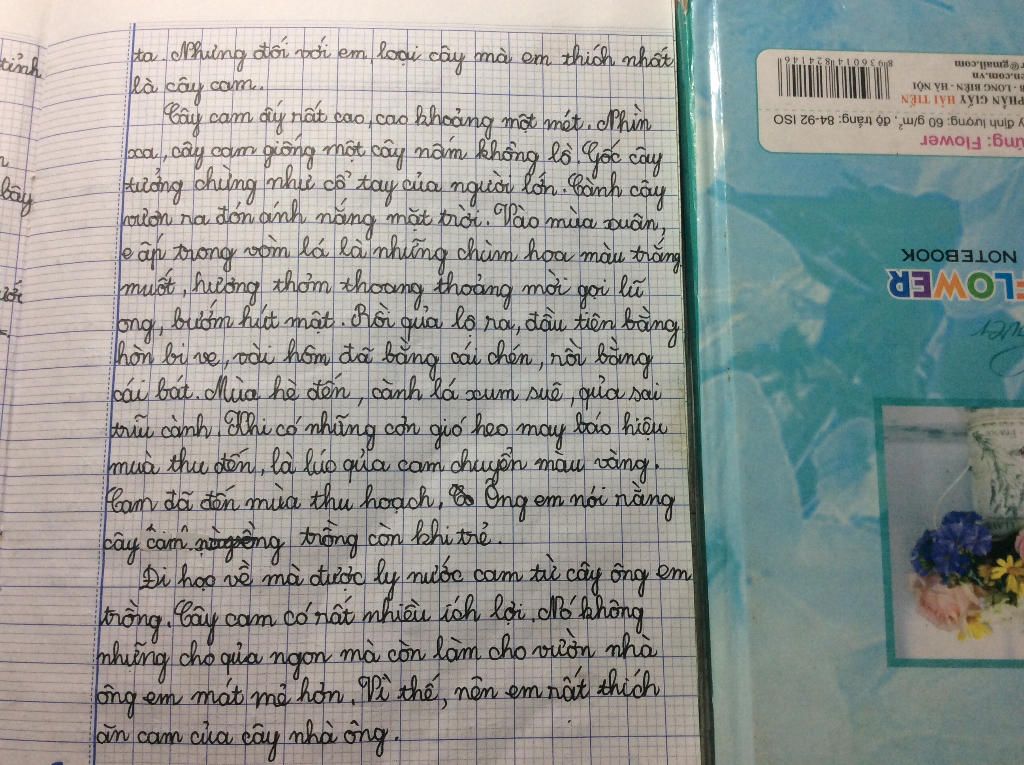 tỉnh
cây
ta. Nhưng đối với em, loại cây mà em thích nhất
là cây cam.
Cây cam ấy rất cao, cao khoảng một mét. Nhìn
xa, cây cam giống một cây nấm khổng lồ. Gốc cây
tưởng chừng như cổ tay của người lớn. Cành cây
vươn ra đón ánh nắng mặt trời. Vào mùa xuân,
e ấp trong vòm lá là những chùm hoa màu trắng
muốt, hương thơm thoang thoảng mời gọi lũ
ong, bướm hút mật. Rồi qủa lộ ra, đầu tiên bằng
hòn bi ve, vài hôm đã bằng cái chén, rồi bằng
cái bát. Mùa hè đến, cành lá xum suê, qủa sai
trĩu cành. Khi có những cơn gió heo may báo hiệu
muà thu đến, là lúc qủa cam chuyển màu vàng.
Cam đã đến mùa thu hoạch. Ông em nói rằng
cây trồng còn khi trẻ.
Đi học về mà được ly nước cam từ cây ông em
trồng. Cây cam có rất nhiều ích lợi. Nó không
những cho qủa ngon mà còn làm cho vườn nhà
ông em mát mẻ hơn. Vì thế, nên em rất thích
ăn cam của cây nhà ông.
8936014824146
r@gmail.com
n.com.vn
B - LONG BIÊN - HÀ NỘI
PHẦN GIẤY HẢI TIẾN
y định lượng: 60 g/m², độ trắng: 84-92 ISO
ứng: Flower
NOTEBOOK
FLOWER